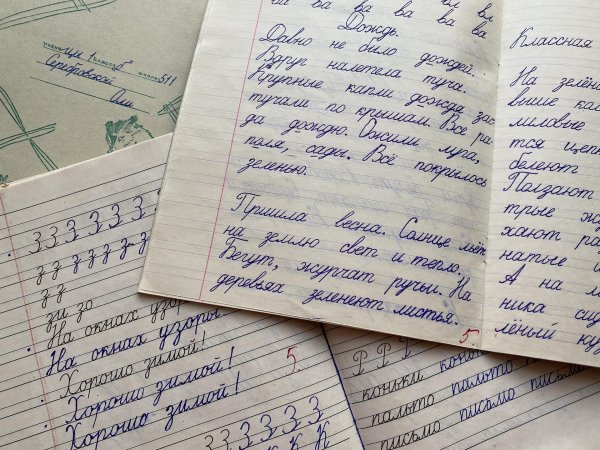 ученицы 1 класса "б"
школы 511
Серебровской
Оли
ва ва ва ва ва ва
Дождь.
Давно не было дождей.
Вдруг налетела туча.
Крупные капли дождя зас
тучали по крышам. Все ра
да дождю. Ожили луга,
поля, сады. Всё покрылось
зеленью.
Пришла весна. Солнце льёт
на землю свет и тепло.
Бегут, журчат ручьи. На
деревьях зеленеют листья.
5
Классная
На зелён
выше кас
миловые
тся цепк
белеют
Ползают
трые жу
хают ра
натые и
А на ли
ника сид
лёный куз
З З З З З З З
з з з з з з з
з з
зи зо
На окнах узоры
На окнах узоры.
Хорошо зимой!
Хорошо зимой!
Хорошо зимой!
5
З З З З З З
К К К
Р Р Р
коньки коньки
пальто пальто
письмо письмо письмо